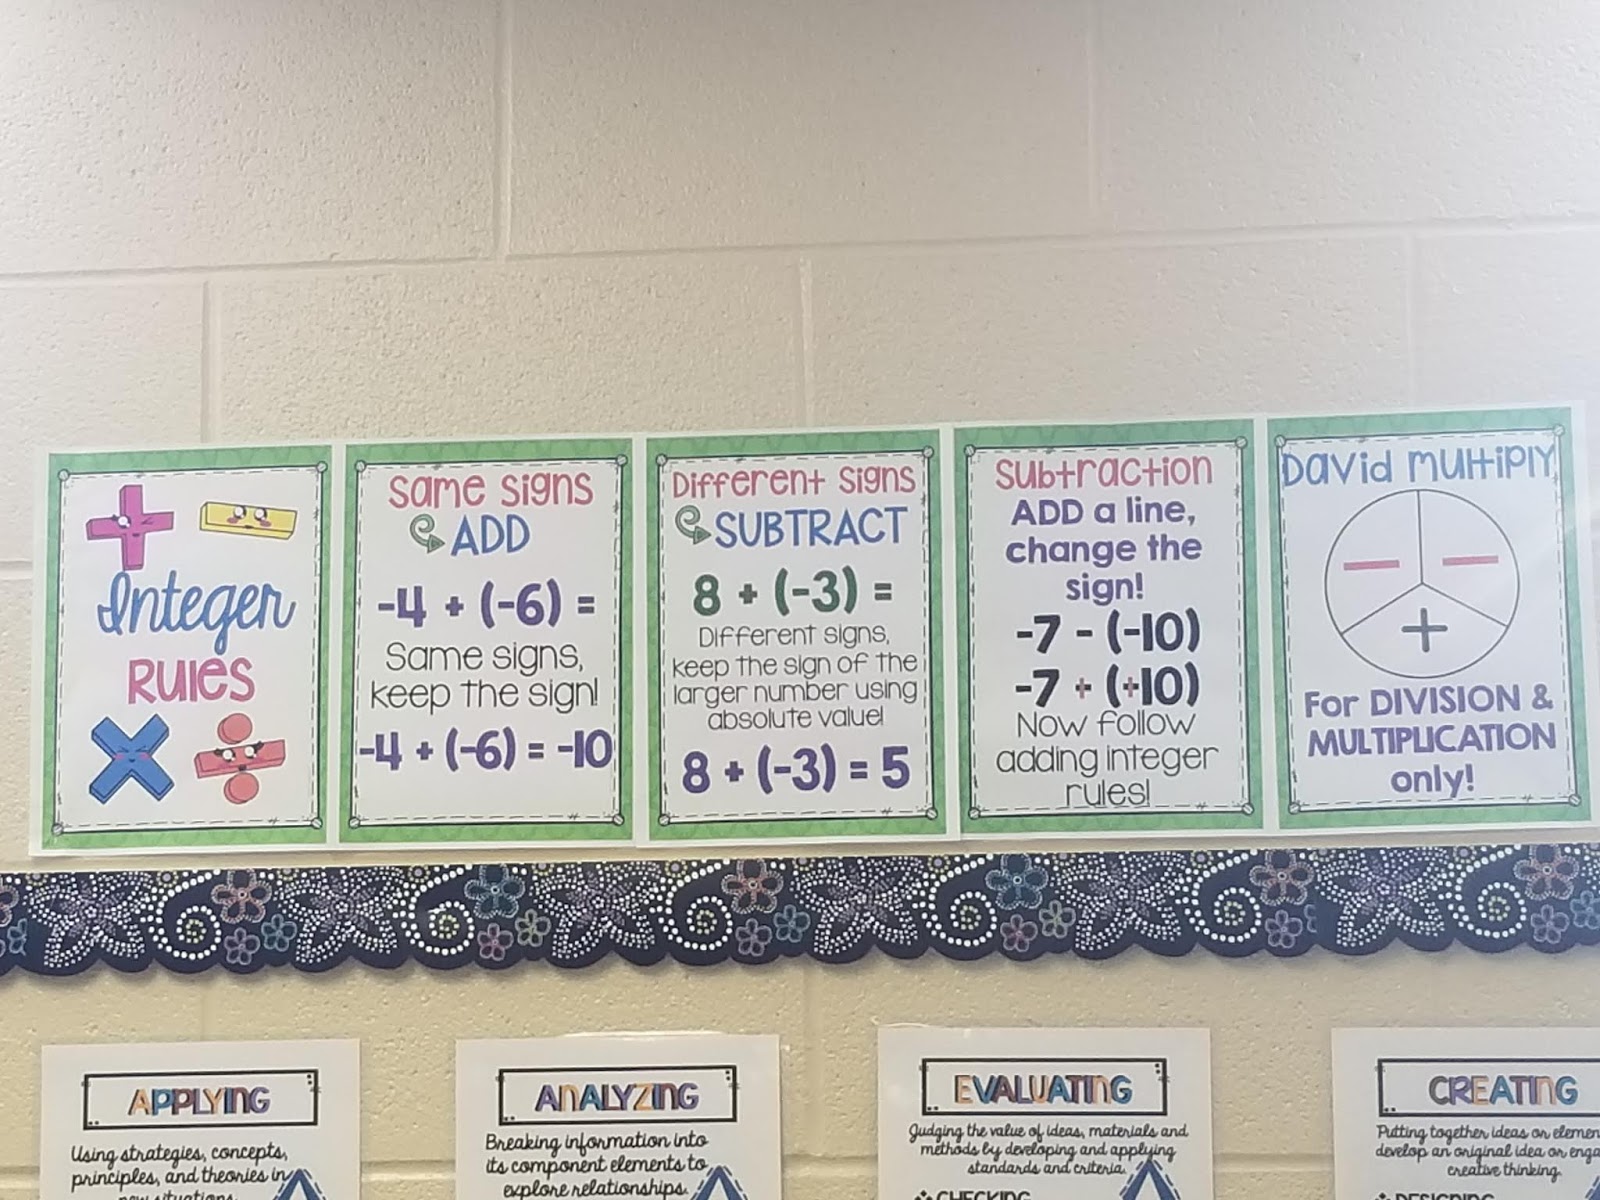 Integer
Rules
Same Signs
ADD
-4 + (-6) =
Same signs,
keep the sign!
-4 + (-6) = -10
Different Signs
SUBTRACT
8 + (-3) =
Different signs,
keep the sign of the
larger number using
absolute value!
8 + (-3) = 5
Subtraction
ADD a line,
change the
sign!
-7 - (-10)
-7 + (+10)
Now follow
adding integer
rules!
David Multiply
− −
+
For DIVISION &
MULTIPLICATION
only!
APPLYING
Using strategies, concepts,
principles, and theories in
new situations.
ANALYZING
Breaking information into
its component elements to
explore relationships.
EVALUATING
Judging the value of ideas, materials and
methods by developing and applying
standards and criteria.
CHECKING
CREATING
Putting together ideas or
develop an original idea or
creative thinking.
DESIGNING